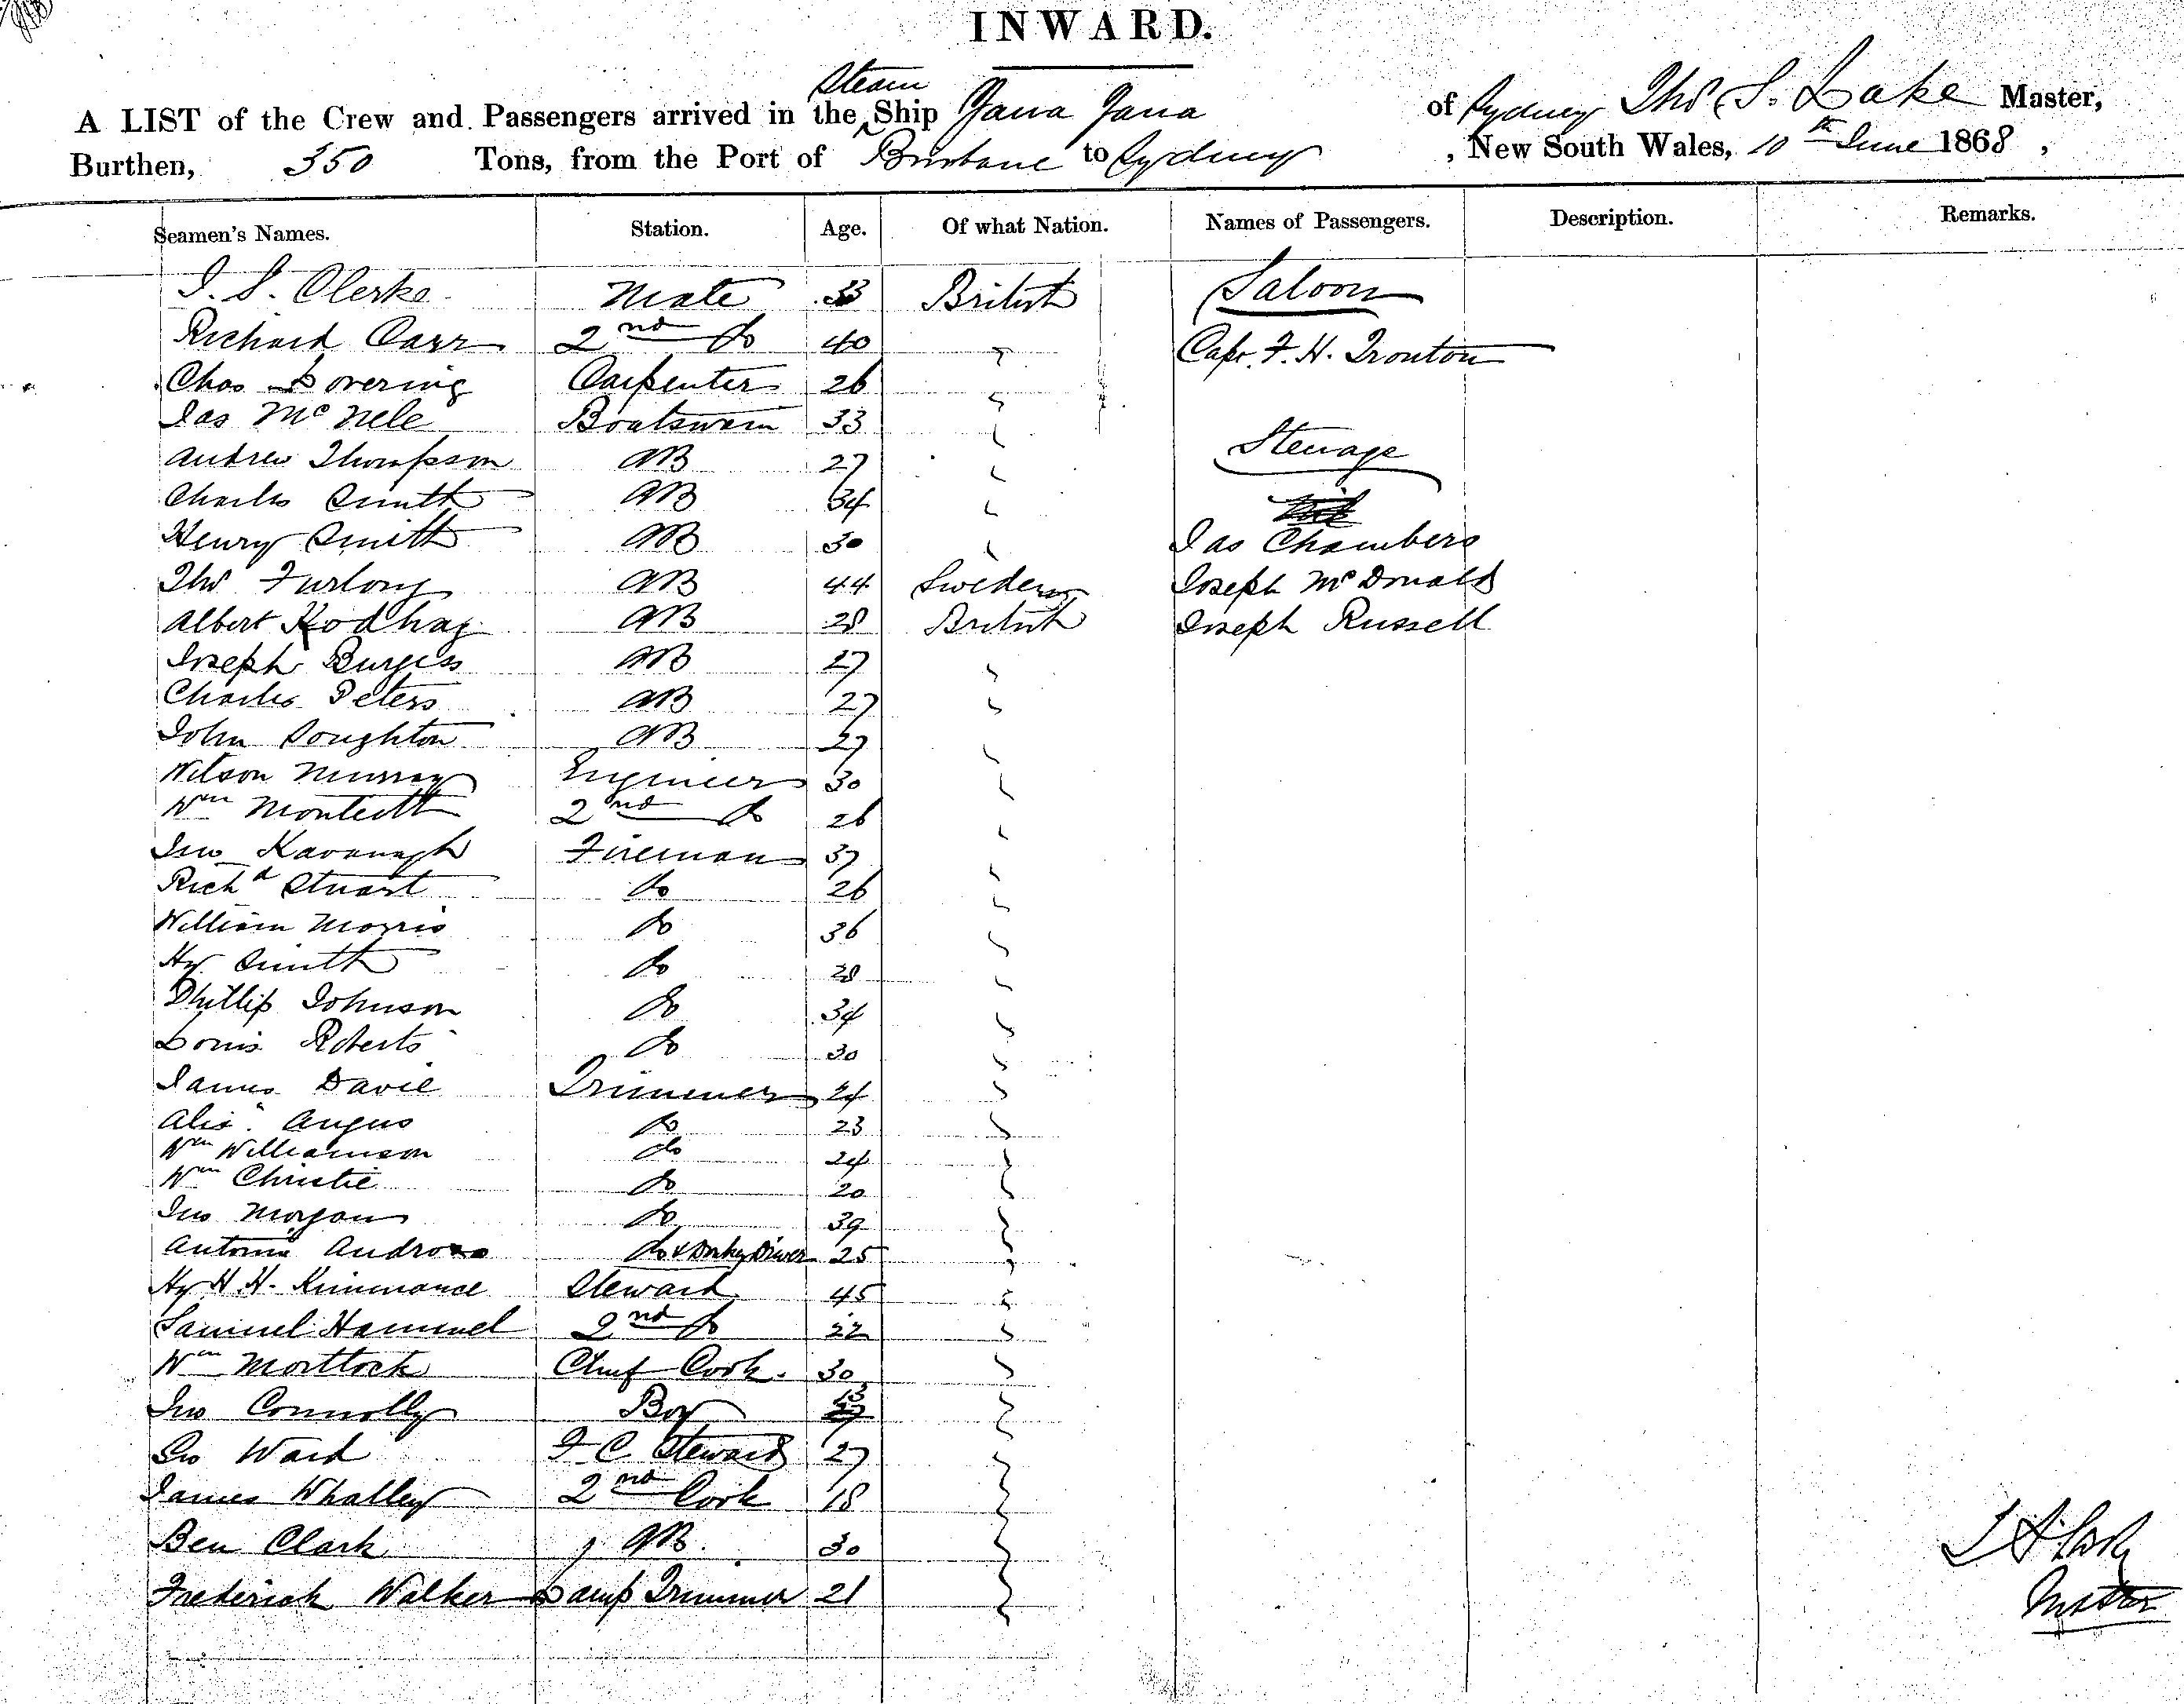 INWARD.
A LIST of the Crew and Passengers arrived in the Steam Ship Yarra Yarra of Sydney Thos S. Lake Master,
Burthen, 350 Tons, from the Port of Brisbane to Sydney, New South Wales, 10th June 1868,
Seamen's Names. Station. Age. Of what Nation. Names of Passengers. Description. Remarks.
J. S. Clerke Mate 33 British Saloon
Richard Carr 2nd do 40 " Capt. F. H. Trouton
Chas Lovering Carpenter 26 "
Jas McNele Boatswain 33 "
Andrew Thompson AB 27 " Steerage
Charles Smith AB 34 "
Henry Smith AB 30 " Jas Chambers
Thos Furlong AB 44 Sweden Joseph McDonald
Albert Rodhag AB 28 British Joseph Russell
Joseph Burgess AB 27 "
Charles Peters AB 27 "
John Boughton AB 27 "
Wilson Murray Engineer 30 "
Wm Monteith 2nd do 26 "
Jno Kavanagh Fireman 37 "
Richd Stuart do 26 "
William Morris do 36 "
Hy Smith do 28 "
Phillip Johnson do 34 "
Louis Roberts do 30 "
James Davie Trimmer 24 "
Alex Angus do 23 "
Wm Williamson do 24 "
Wm Christie do 20 "
Jno Morgan do 39 "
Antonia do & Donkey Driver 25 "
Hy H. H. Kimmance Steward 45 "
Samuel Hammel 2nd do 22 "
Wm Mortlock Chief Cook. 30 "
Jno Connolly Boy 13 "
Geo Ward F C Steward 27 "
James Whalley 2nd Cook 18 "
Ben Clark AB. 30 "
Frederick Walker Lamp Trimmer 21 "
Master